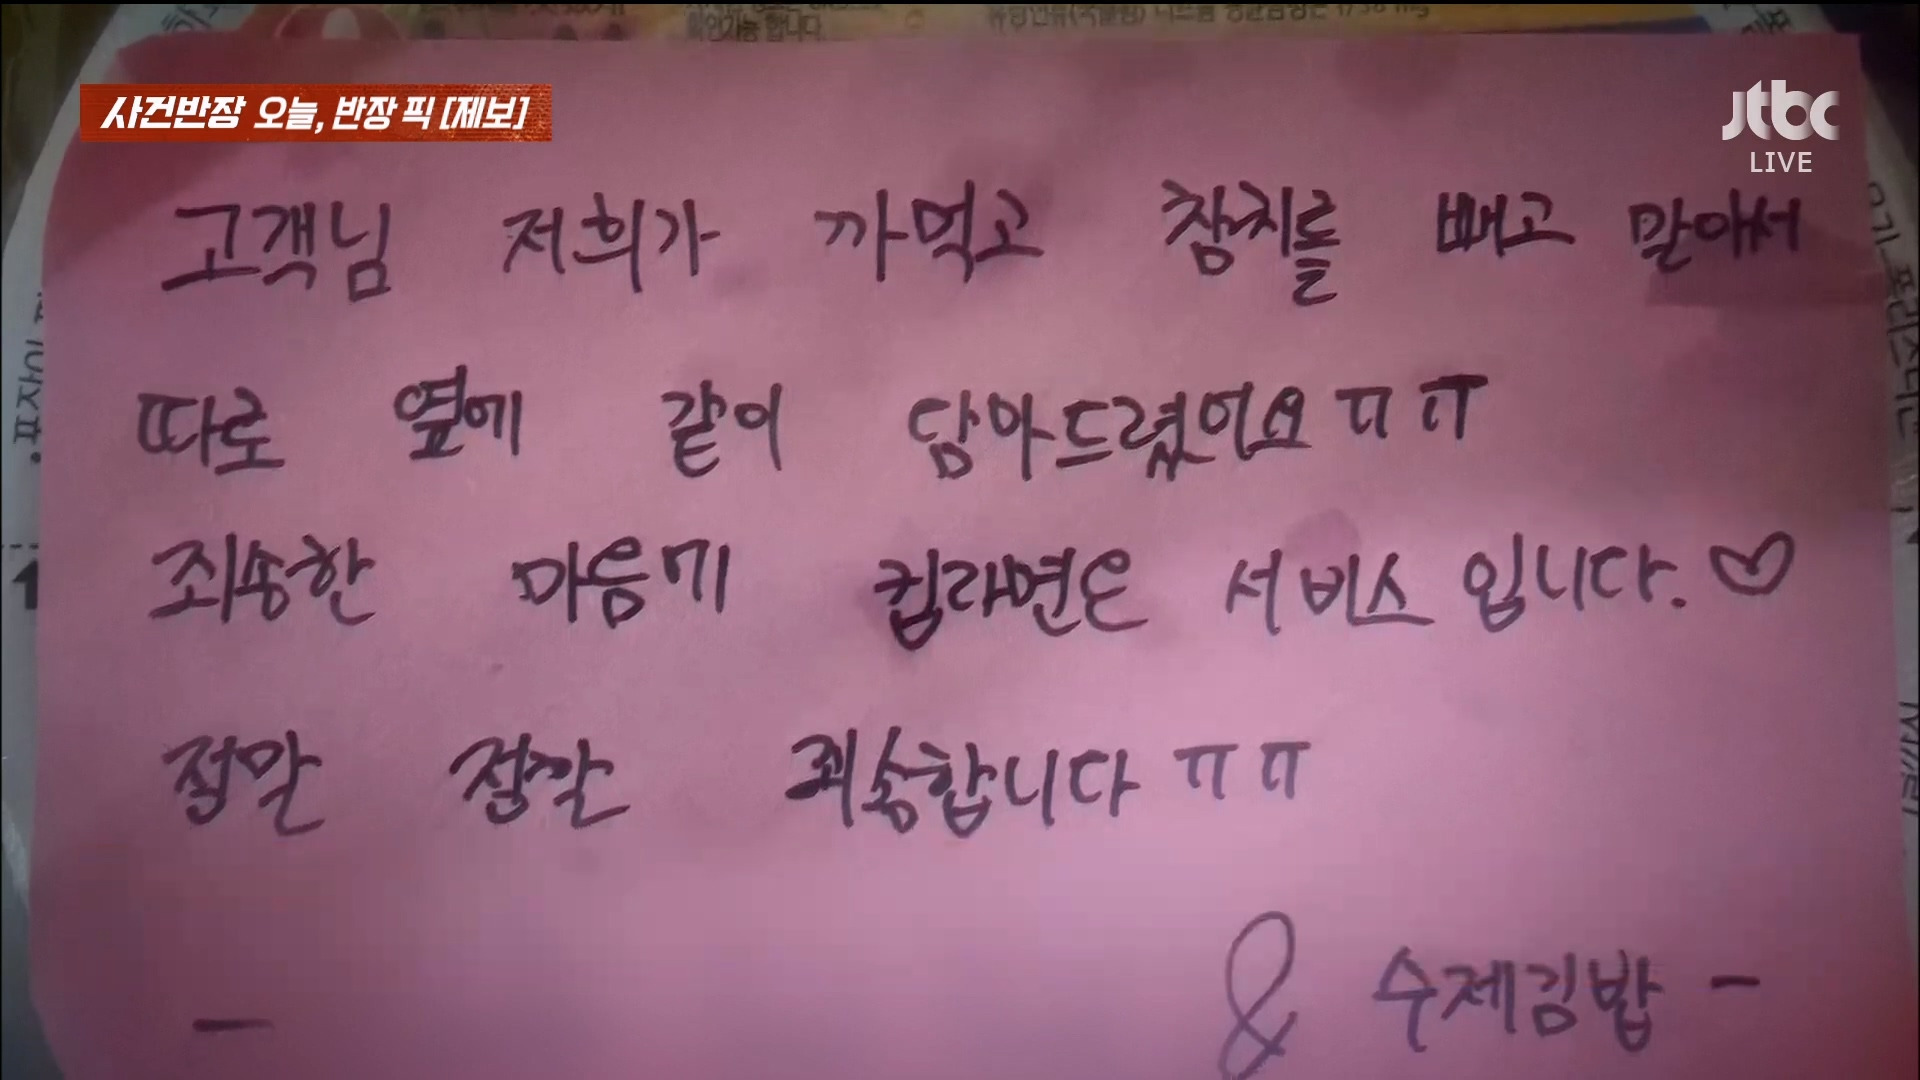 확인가능 합니다.
사건반장 오늘, 반장 픽 [제보]
jtbc
LIVE
고객님 저희가 까먹고 참치를 빼고 말아서
따로 옆에 같이 담아드렸어요ㅠㅠ
죄송한 마음에 컵라면은 서비스 입니다. ♡
정말 정말 죄송합니다ㅠㅠ
- & 수제김밥 -